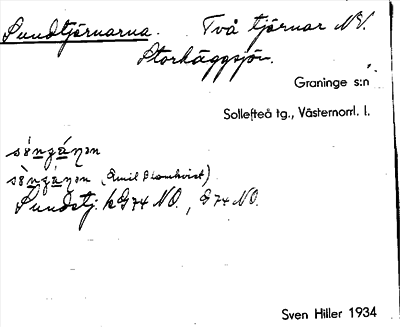 Sundtjärnarna. Två tjärnar NV.
Storhäggsjön.
Graninge s:n
Sollefteå tg., Västernorrl. l.
(Emil Blomkvist)
Sundstj. k G74 NO., G74 NO.
Sven Hiller 1934